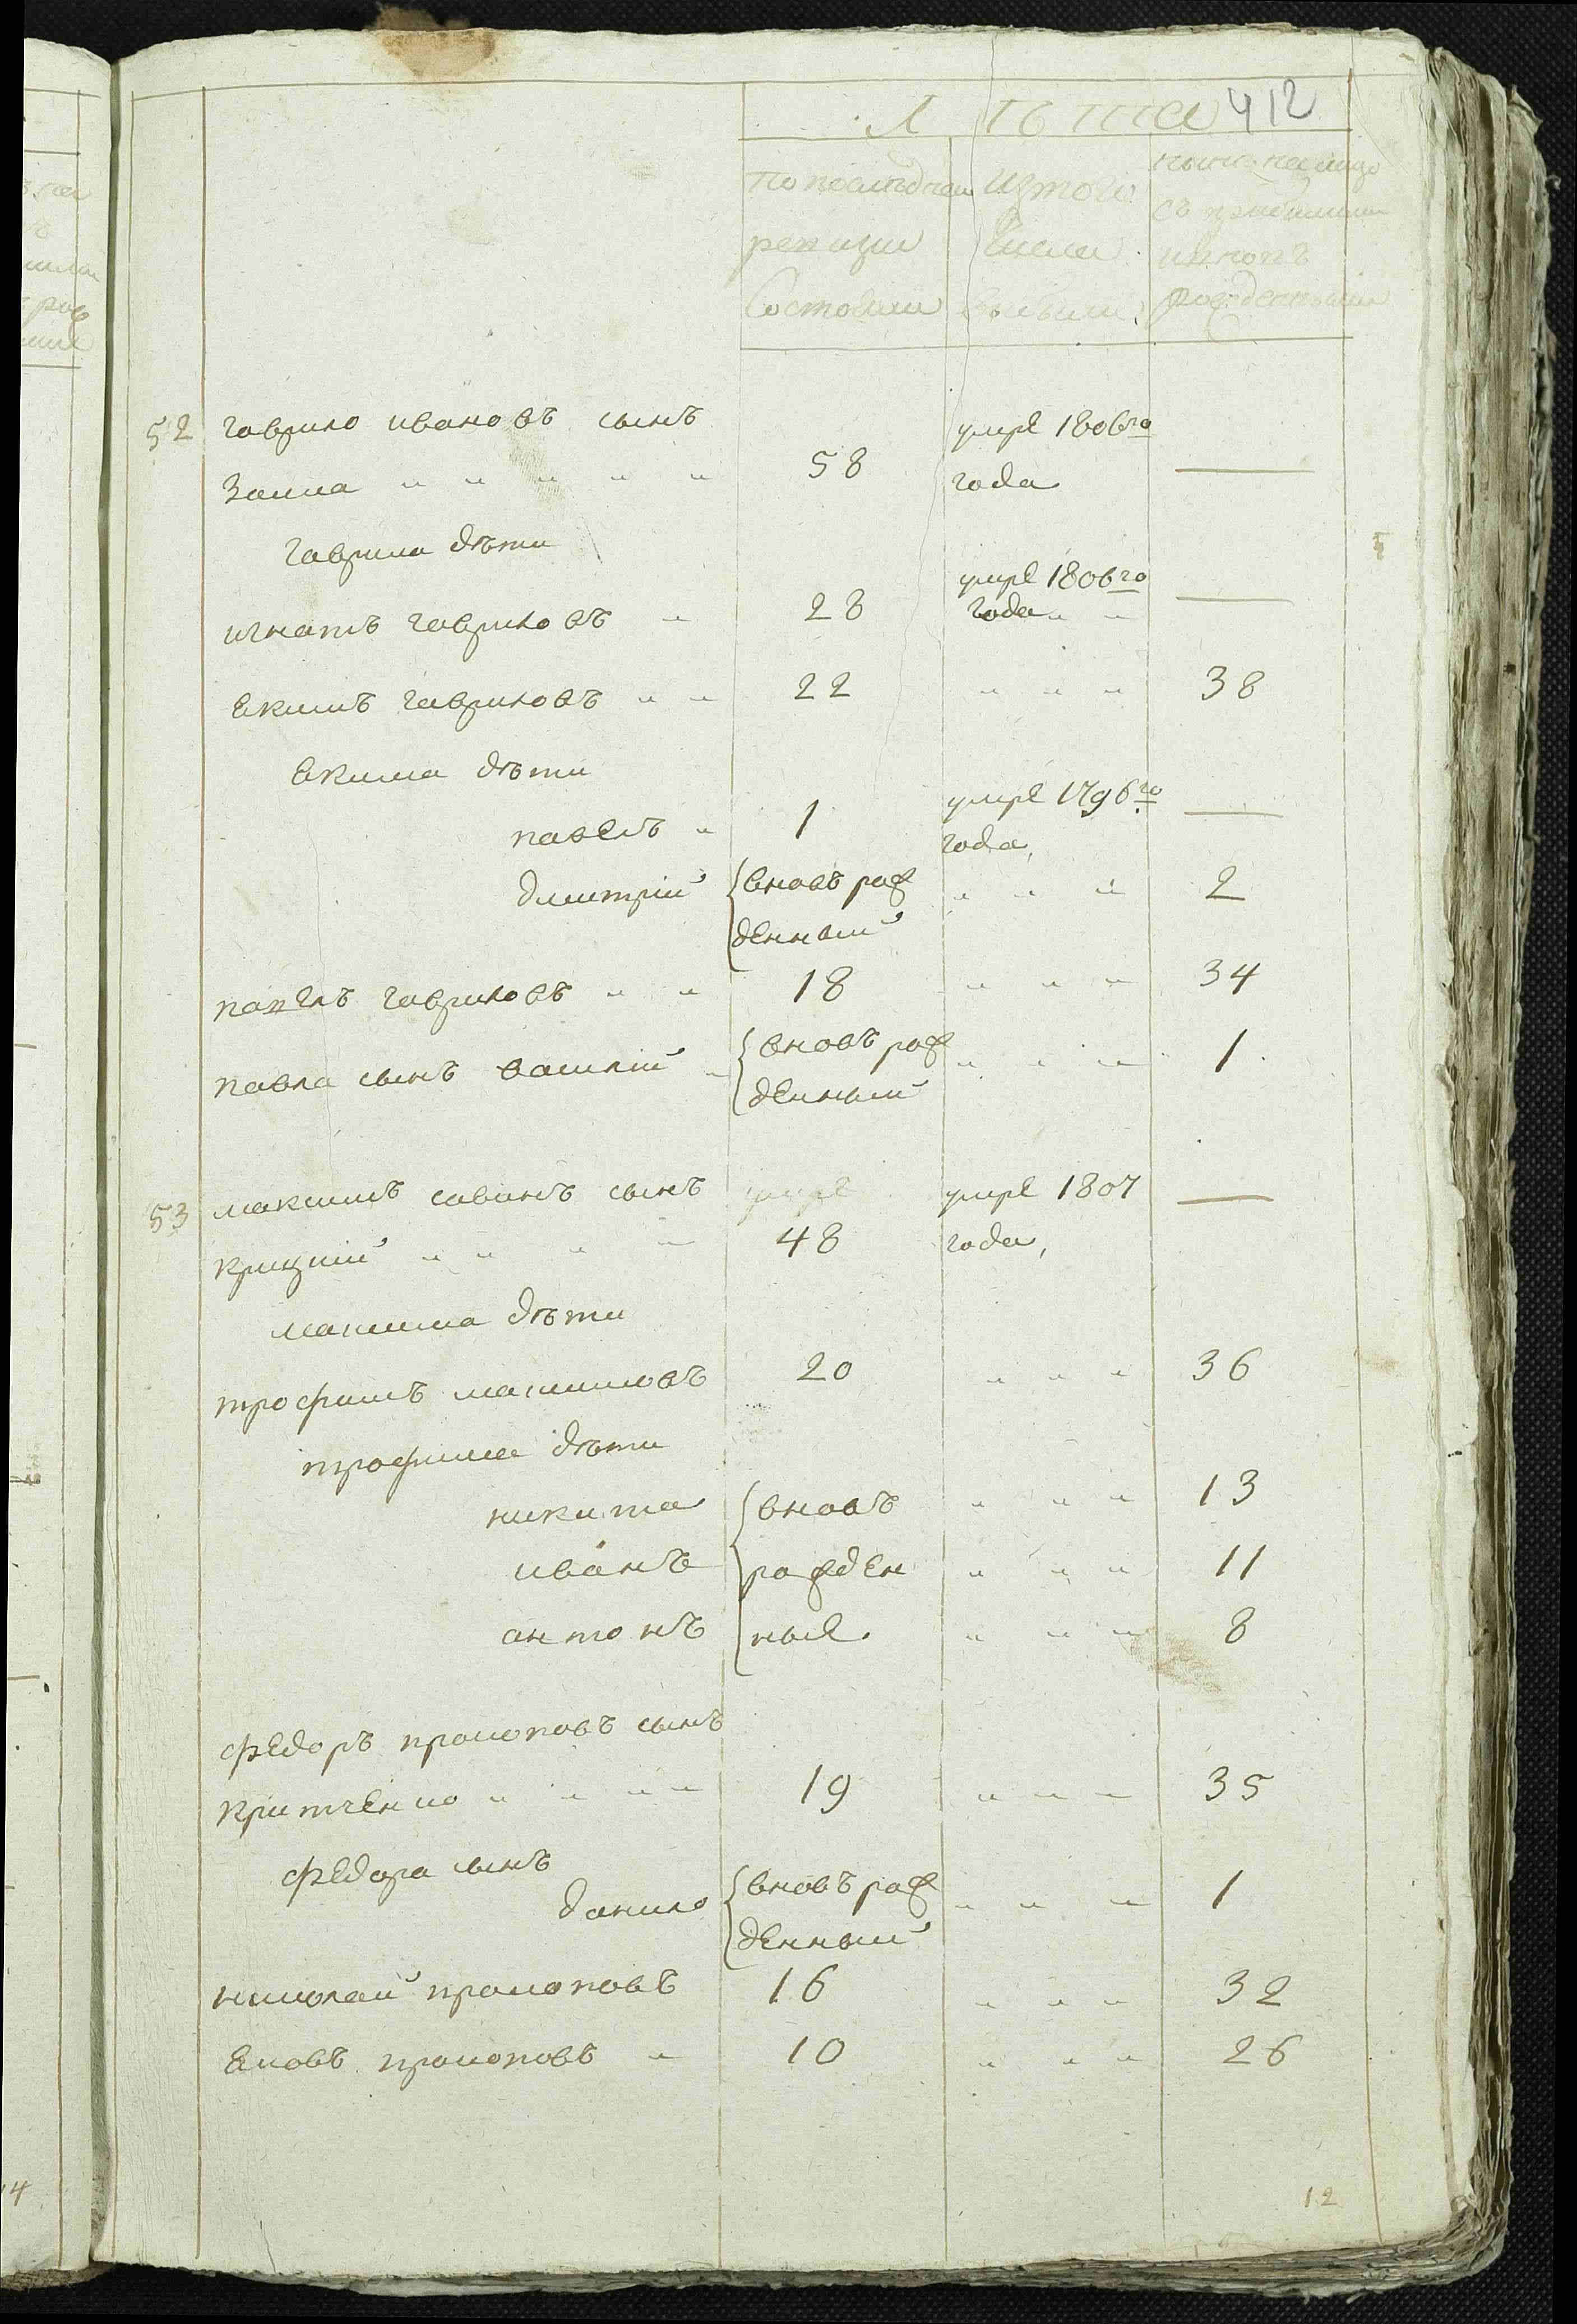 412
Лѣта
по последней ревизии состояли
изтого числа выбыли
ныне налицо с прибылыми и вновъ рожденными
52 гаврило ивановъ сынъ умре 1806го
Заика " " " " " 58 года —
гаврила дѣти
умре 1806го
игнатъ гавриловъ " 28 года " " —
Екимъ гавриловъ " " 22 " " " 38
Екима дѣти
павелъ " 1 умре 1796го —
года
дмитрій вновъ рож " " " 2
денный
павелъ гавриловъ " " 18 " " " 34
павла сынъ василій " вновъ рож " " " 1
денный
53 максимъ савинъ сынъ умре умре 1807 —
крицкій " " " " 48 года
максима дѣти
трофимъ максимовъ 20 " " " 36
трофима дѣти
никита вновъ " " " 13
иванъ рожден " " " 11
антонъ ные " " " 8
Федоръ прокоповъ сынъ
критченко " " " " 19 " " " 35
Федора сынъ
данило вновъ рож " " " 1
денный
николай прокоповъ 16 " " " 32
Ековъ прокоповъ " 10 " " " 26
12
14